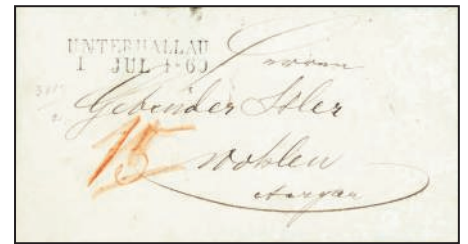 UNTERHALLAU
1 JUL
Herren
Gebrüder Isler
15
Wohlen
Aargau